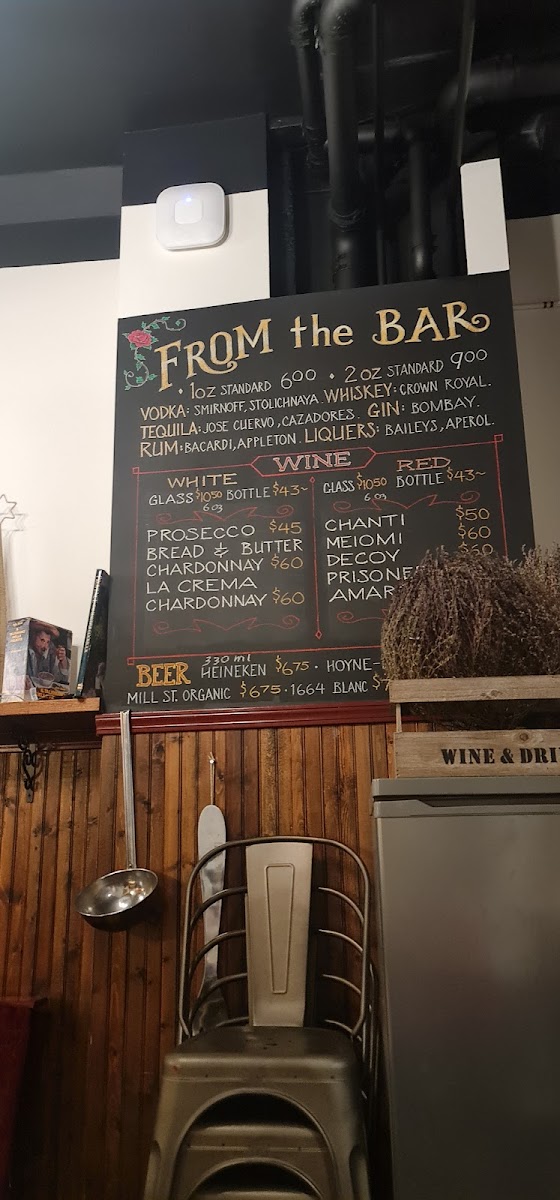 FROM the BAR
• 1oz STANDARD 600 • 2oz STANDARD 900
VODKA: SMIRNOFF, STOLICHNAYA. WHISKEY: CROWN ROYAL.
TEQUILA: JOSE CUERVO, CAZADORES. GIN: BOMBAY.
RUM: BACARDI, APPLETON. LIQUERS: BAILEYS, APEROL.
WINE
WHITE
GLASS $1050 BOTTLE $43~
6 oz
PROSECCO $45
BREAD & BUTTER
CHARDONNAY $60
LA CREMA
CHARDONNAY $60
RED
GLASS $1050 BOTTLE $43~
6 oz
CHANTI $50
MEIOMI $60
DECOY $60
PRISONE
AMAR
BEER 330 ml HEINEKEN $675 • HOYNE-
MILL ST. ORGANIC $675 • 1664 BLANC $7
WINE & DRI